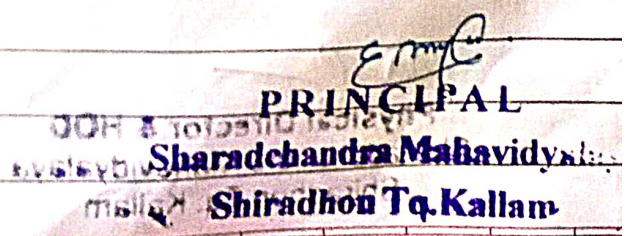 PRINCIPAL
Sharadchandra Mahavidyalaya
Shiradhon Tq. Kallam